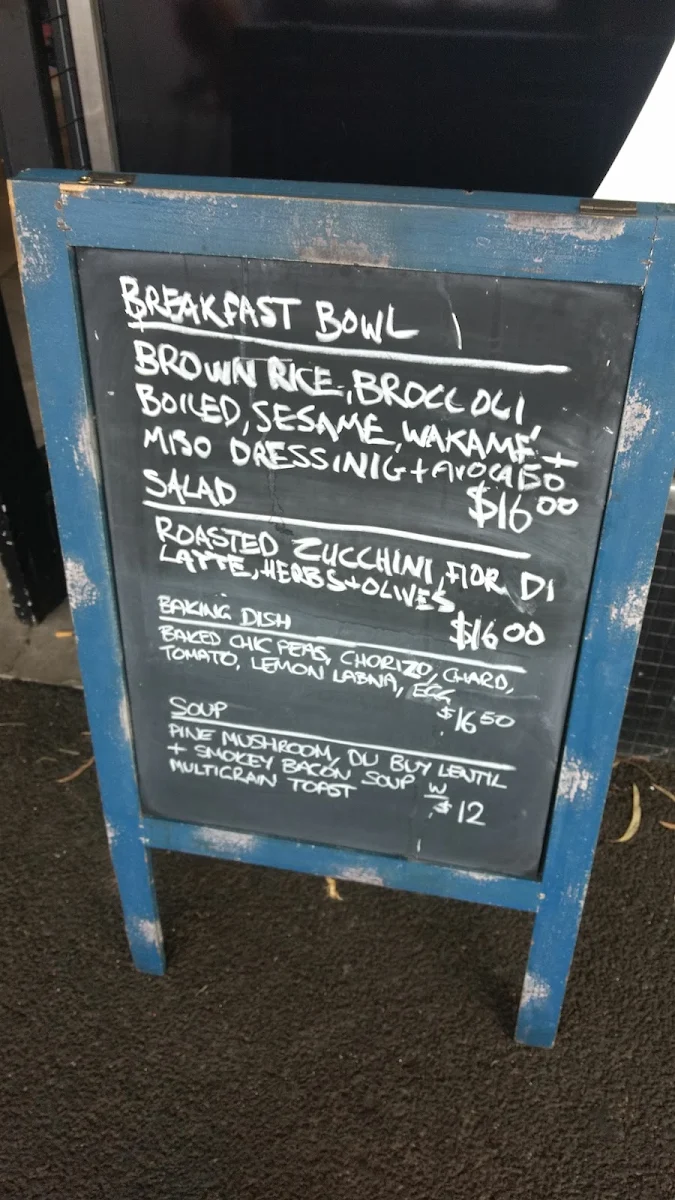 BREAKFAST BOWL
BROWN RICE, BROCCOLI,
BOILED, SESAME, WAKAME, +
MISO DRESSINIG + AVOCADO
$16 00
SALAD
ROASTED ZUCCHINI, FIOR DI
LATTE, HERBS + OLIVES
$16 00
BAKING DISH
BAKED CHIC PEAS, CHORIZO, CHARD,
TOMATO, LEMON LABNA, EGG
$16 50
SOUP
PINE MUSHROOM, DU BUY LENTIL
+ SMOKEY BACON SOUP W
MULTIGRAIN TOAST
$12